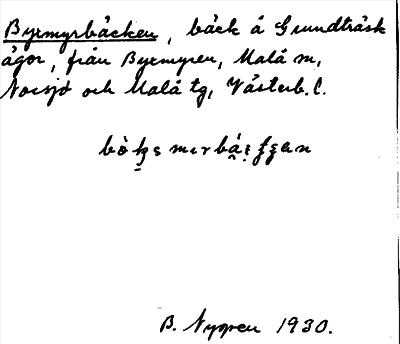 Byrmyrbäcken, bäck å Grundträsk
ägor, från Byrmyren, Malå sn,
Norsjö och Malå tg, Västerb. l.
B. Nygren 1930.